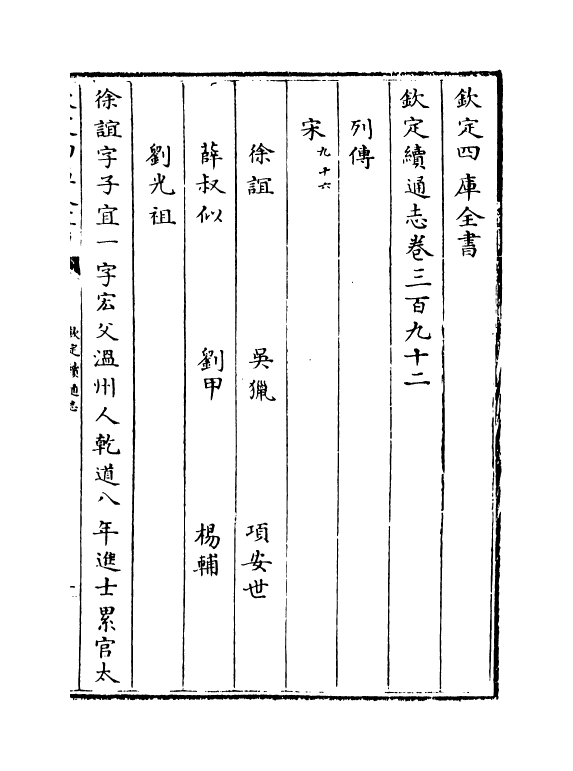 欽定四庫全書
欽定續通志卷三百九十二
列傳
宋九十六
徐誼 吳獵 項安世
薛叔似 劉甲 楊輔
劉光祖
徐誼字子宜一字宏父溫州人乾道八年進士累官太
欽定續通志